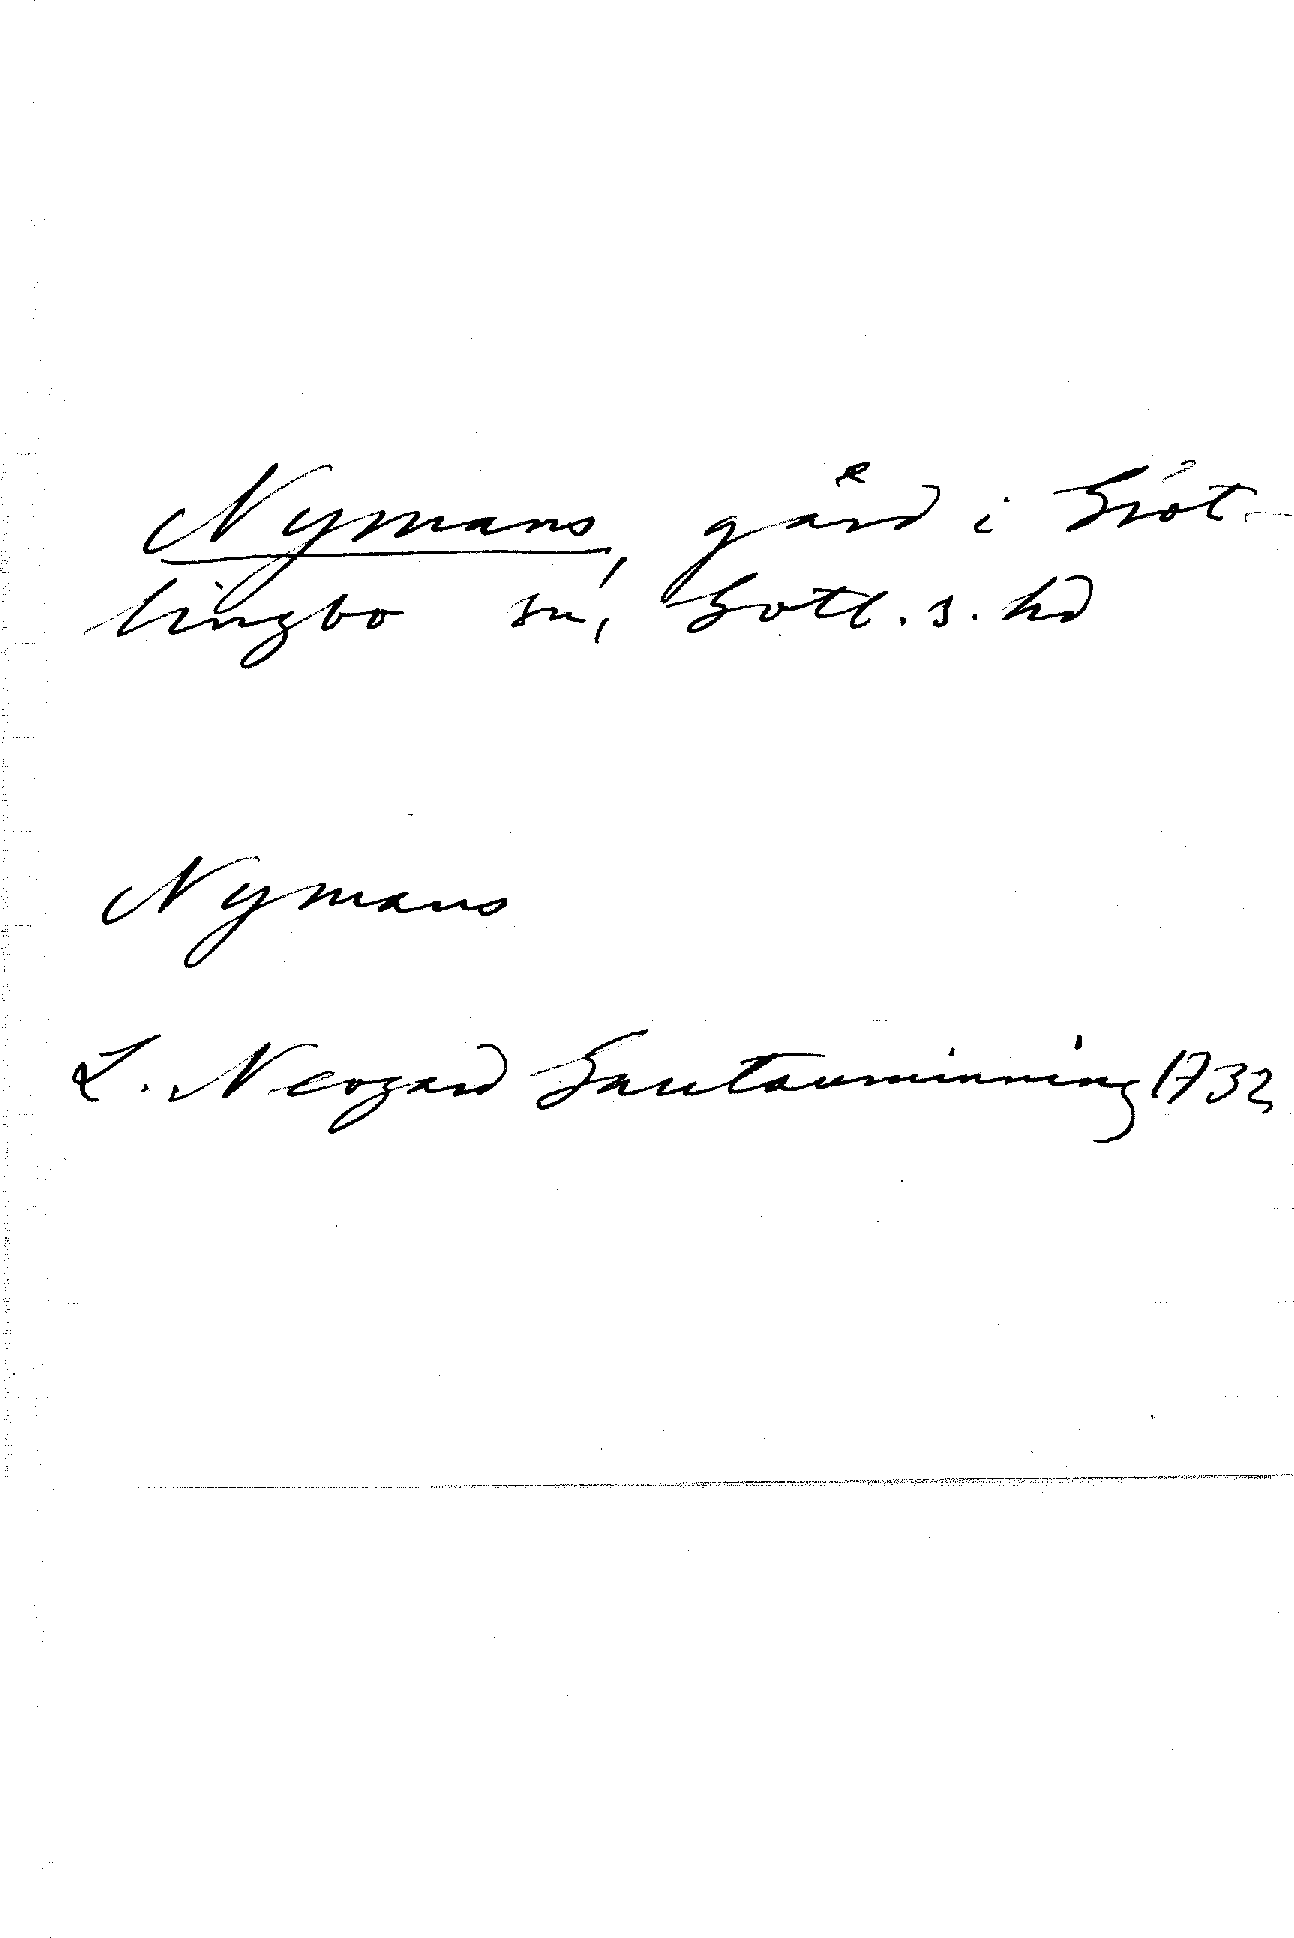 Nymans, gård i Gröt-
lingbo sn, Gotl. s. hd
Nymans
L. Neogard Gautauminning 1732